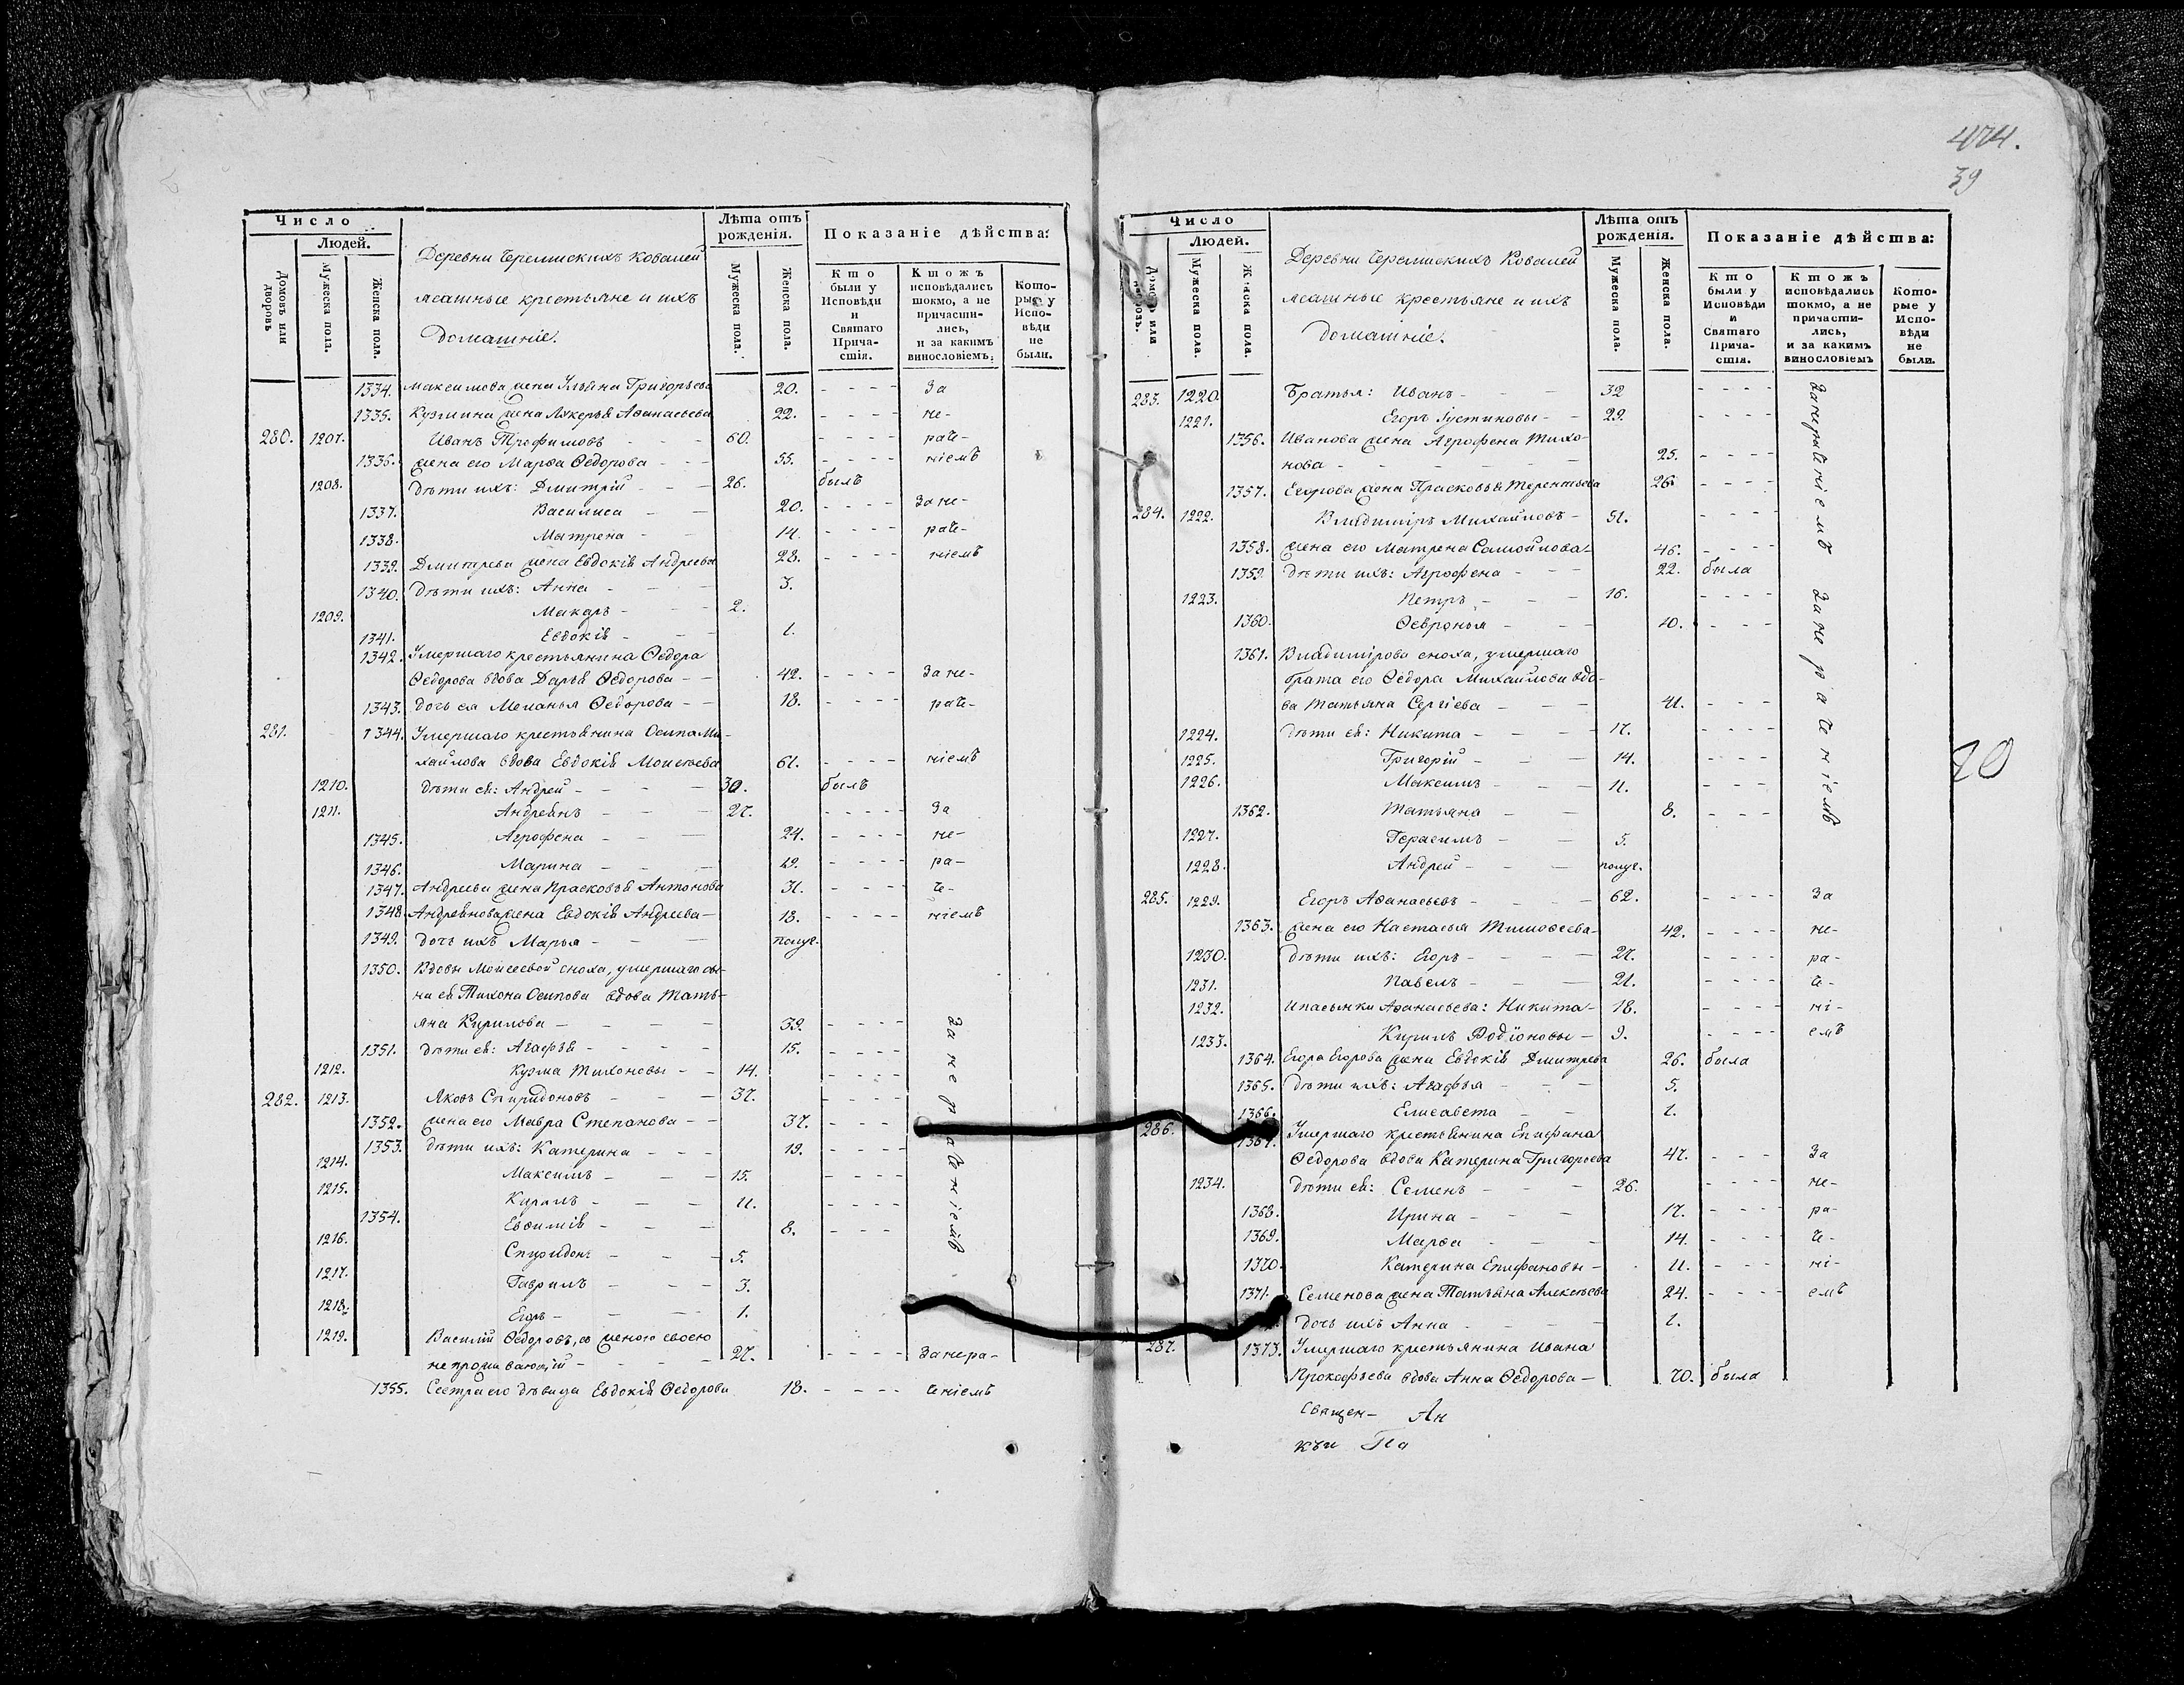 474.
39
Число
Людей.
Домовъ или дворовъ
Мужеска пола.
Женска пола.
Деревни Черемискихъ Ковалей
ясашные крестьяне и ихъ
домашніе.
Лѣта отъ рожденія.
Мужеска пола.
Женска пола.
Показаніе дѣйства:
Кто были у Исповѣди и Святаго Прича-стія.
Ктожъ исповѣдались токмо, а не причасти-лись, и за какимъ винословіемъ.
Кото-рые у Испо-вѣди не были.
1334. Максимова жена Ульяна Григорьева 20. - - - - За
1335. Кузмина жена Лукерья Аѳанасьева 22. - - - - не-
280. 1207. Иванъ Трофимовъ - - - 60. - - - - раче-
1336. жена его Марѳа Ѳедорова - - - 55. - - - - ніемъ
1208. дѣти ихъ: Дмитрій - - - 26. былъ
1337. Василиса - - 20. - - - - За не-
1338. Матрена - - 14. - - - - раче-
1339. Дмитрева жена Евдокія Андреева 28. - - - - ніемъ
1340. дѣти ихъ: Анна - - - 3.
1209. Макаръ - - - 2.
1341. Евдокія - - - 1.
1342. Умершаго крестьянина Ѳедора
Ѳедорова вдова Дарья Ѳедорова - - 42. - - - - За не-
1343. дочь ея Меланья Ѳедорова - - 18. - - - - раче-
281. 1344. Умершаго крестьянина Осипа Ми-
хайлова вдова Евдокія Моисеева 61. - - - - ніемъ
1210. дѣти ея: Андрей - - - - 30. былъ
1211. Андреянъ - - - 27. - - - - За
1345. Агрофена - - - 24. - - - - не-
1346. Марина - - - 19. - - - - ра-
1347. Андреева жена Прасковья Антонова 31. - - - - че-
1348. Андреянова жена Евдокія Андреева - 18. - - - - ніемъ
1349. дочь ихъ Марья - - - полуг.
1350. Вдовы Моисеевой сноха, умершаго сы-
на ея Тихона Осипова вдова Тать-
яна Кирилова - - - - 39. - - - -
1351. дѣти ея: Агафья - - - - 15. - - - -
1212. Кузма Тихоновы - - 14. - - - -
282. 1213. Яковъ Спиридоновъ - - - 37. - - - -
1352. жена его Мавра Степанова - - 37. - - - -
1353. дѣти ихъ: Катерина - - - 19. - - - -
1214. Максимъ - - - 15. - - - -
1215. Кирилъ - - - 11. - - - -
1354. Евѳимія - - - 8. - - - -
1216. Спиридонъ - - - 5.
1217. Гаврилъ - - - 3.
1218. Егоръ - - - 1.
1219. Василій Ѳедоровъ, съ женою своею
не проживающій - - - - 27. - - - - За нера-
1355. Сестра его дѣвица Евдокія Ѳедорова 18. - - - - ченіемъ
За не раченіемъ
Число
Людей.
Мужеска пола.
Женска пола.
Деревни Черемискихъ Ковалей
ясашные крестьяне и ихъ
домашніе.
Лѣта отъ рожденія.
Мужеска пола.
Женска пола.
Показаніе дѣйства:
Кто были у Исповѣди и Святаго Прича-стія.
Ктожъ исповѣдались токмо, а не причасти-лись, и за какимъ винословіемъ
Кото-рые у Испо-вѣди не были.
283. 1220. Братья: Иванъ - - - 32 - - - -
1221. Егоръ Густиновы - - 29. - - - -
1356. Иванова жена Агрофена Тихо-
нова - - - - - - 25. - - - -
1357. Егорова жена Прасковья Терентьева 26. - - - -
284. 1222. Владимиръ Михайловъ - 51. - - - -
1358. жена его Матрена Самойлова - 46. - - - -
1359. дѣти ихъ: Агрофена - - - 22. была
1223. Петръ - - - 16. - - - -
1360. Ѳевронья - - - 10. - - - -
1361. Владимірова сноха, умершаго
брата его Ѳедора Михайлова вдо-
ва Татьяна Сергіева - - - 41. - - -
1224. дѣти ея: Никита - - - - 17. - - - -
1225. Григорій - - - 14. - - - -
1226. Максимъ - - - 11. - - -
1362. Татьяна - - 8. - - -
1227. Герасимъ - - 5.
1228. Андрей - - - полуг.
За нераченіемъ За не раченіемъ
20
285. 1229. Егоръ Аѳанасьевъ - - - - 62. - - - - За
1363. жена его Настасья Тимоѳеева - 42. - - - - не-
1230. дѣти ихъ: Егоръ - - - - 27. - - - - ра-
1231. Павелъ - - - 21. - - - - че-
1232. Ипасынки Аѳанасьева: Никита - 18. - - - - ні-
1233. Кирилъ Родіоновы - 9. - - - - емъ
1364. Егора Егорова жена Евдокія Дмитрева 26. была
1365. дѣти ихъ: Агафья - - - 5.
1366. Елисавета - - 1.
286. 1367. Умершаго крестьянина Епифана
Ѳедорова вдова Катерина Григорьева 47. - - - За
1234. дѣти ея: Семенъ - - - 26. - - - - не-
1368. Ирина - - - 17. - - - - ра-
1369. Марѳа - - - 14. - - - - че-
1370. Катерина Епифановы - 11. - - - - ні-
1371. Семенова жена Татьяна Алексѣева 24. - - - - емъ
дочь ихъ Анна - - - - 1.
287. 1373. Умершаго крестьянина Ивана
Прокофьева вдова Анна Ѳедорова - 70. была
Священ- Ан
къи Па